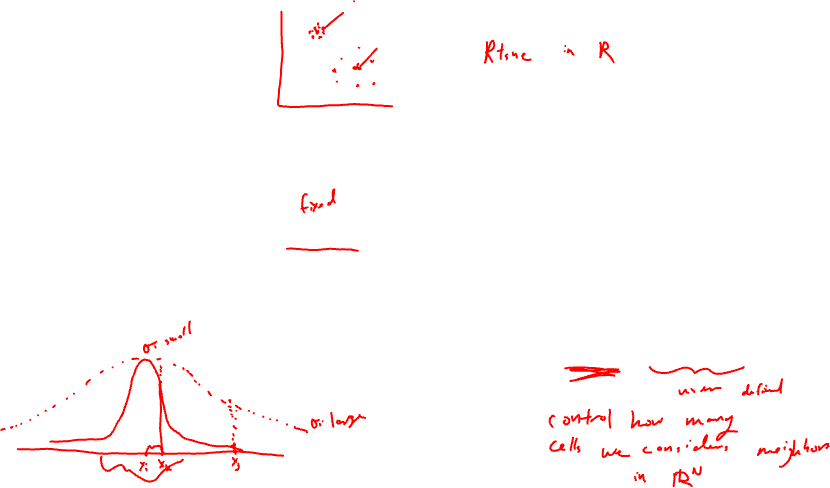 Rtsne in R
fixed
σi small
σi large
xi xk xj
user defined
control how many
cells we consider neighbors
in ℝᴺ